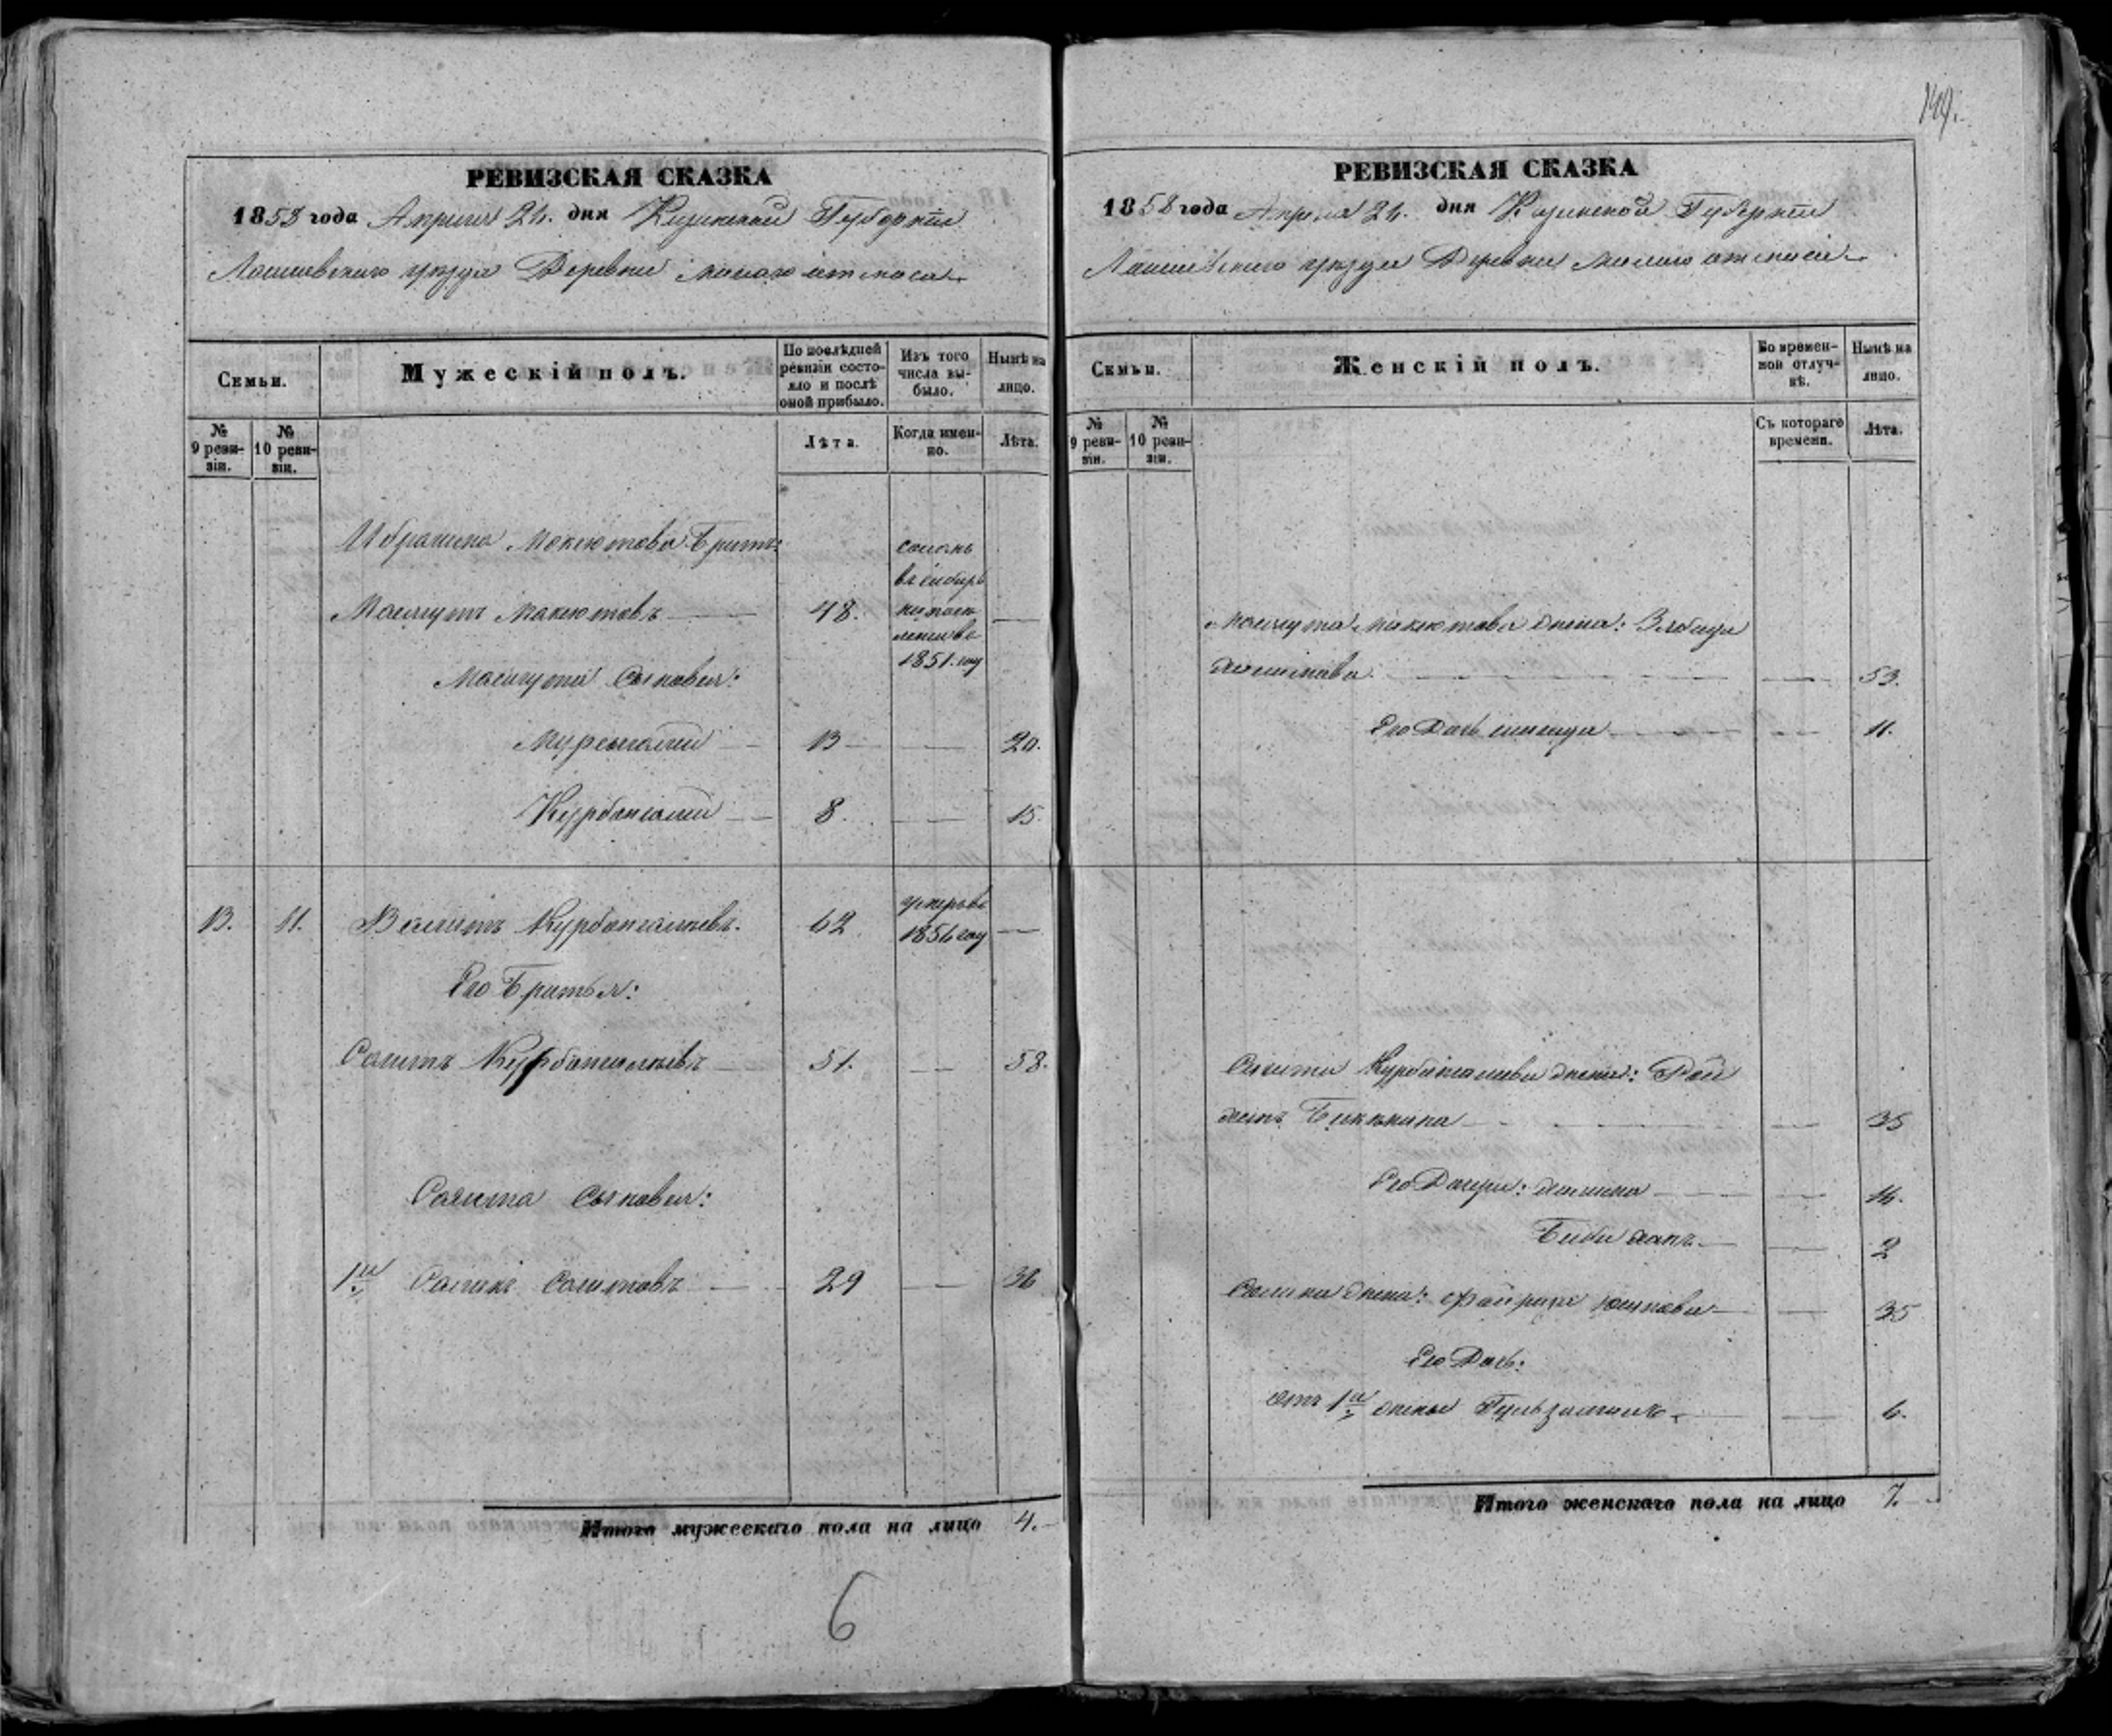 149.
РЕВИЗСКАЯ СКАЗКА
1858 года Апреля 24. дня Казанской Губернiи
Лаишевскаго уезда Деревни малаго атмаса
Семьи.
Мужескiй полъ.
По послѣдней ревизiи состояло и послѣ оной прибыло.
Изъ того числа выбыло.
Нынѣ на лицо.
№ 9 ревизiи.
№ 10 ревизiи.
Лѣта.
Когда именно.
Лѣта.
Ибрагима Макютова Братъ:
Масгутъ Макютовъ 48.
сосланъ
въ сибирь
на посе
ленiе въ
1851. году
Масгута Сыновья:
13 20.
Курбангалей 8. 15.
13. 11. Валитъ Курбангалѣевъ. 62
умеръ въ
1856 году
Его Братья:
Сагитъ Курбангалѣевъ 51. 58.
Сагита Сыновья:
1й Салихъ Сагитовъ 29 36
Итого мужескаго пола на лицо 4.
6
РЕВИЗСКАЯ СКАЗКА
1858 года Апреля 24. дня Казанской Губернiи
Лаишевскаго уезда Деревни малаго атмаса
Семьи.
Женскiй полъ.
Во временной отлучкѣ.
Нынѣ на лицо.
№ 9 ревизiи.
№ 10 ревизiи.
Съ котораго времени.
Лѣта.
Масгута Макютова жена:
53.
Его Дочь 11.
Сагита Курбангалиева жена: Рай
ханъ 35
Его Дочери: 14.
Биби 2
Салиха жена: 35
Его Дочь:
отъ 1й жены 6.
Итого женскаго пола на лицо 7.